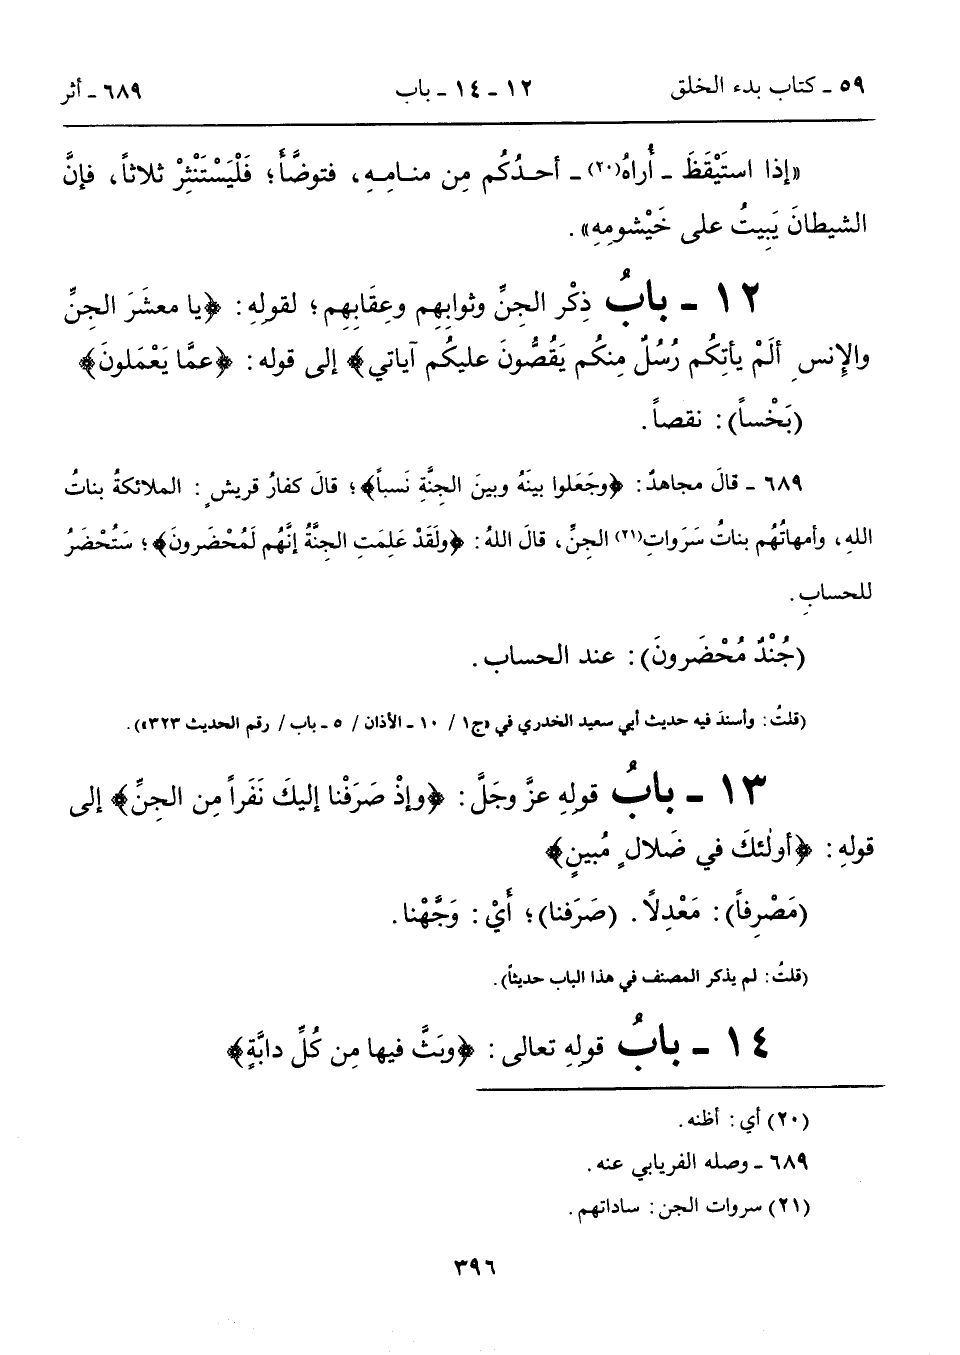 ٥٩ ـ كتاب بدء الخلق ١٢ ـ ١٤ ـ باب ٦٨٩ ـ أثر
«إذا استَيْقَظَ ـ أُراهُ(٢٠) ـ أحدُكُم مِن منـامِـهِ، فتوضَّأَ؛ فَلْيَسْتَنْثِرْ ثلاثاً، فإنَّ
الشيطانَ يَبِيتُ على خَيْشومِهِ».
١٢ ـ بابُ ذِكْر الجنِّ وثوابِهِم وعِقَابِهِم؛ لقولِهِ: ﴿يا معشَرَ الجنِّ
والإِنسِ ألَمْ يأتِكُم رُسُلٌ مِنكُم يَقُصُّونَ عليكُم آياتي﴾ إلى قوله: ﴿عمَّا يَعْمَلونَ﴾
(بَخْساً): نقصاً.
٦٨٩ ـ قالَ مجاهدٌ: ﴿وجَعَلوا بينَهُ وبينَ الجِنَّةِ نَسباً﴾؛ قالَ كفارُ قريشٍ: الملائكةُ بناتُ
اللهِ، وأمهاتُهُم بناتُ سَرَواتِ(٢١) الجنِّ، قالَ اللهُ: ﴿ولَقَدْ عَلِمَتِ الجِنَّةُ إنَّهُم لَمُحْضَرونَ﴾؛ سَتُحْضَرُ
للحسابِ.
(جُنْدٌ مُحْضَرونَ): عند الحساب.
(قلتُ: وأسندَ فيه حديث أبي سعيد الخدري في «ج١ / ١٠ ـ الأذان / ٥ ـ باب / رقم الحديث ٣٢٣»).
١٣ ـ بابُ قولِهِ عزَّ وجَلَّ: ﴿وإذْ صَرَفْنا إليكَ نَفَراً مِن الجِنِّ﴾ إلى
قولهِ: ﴿أولٰئكَ في ضَلالٍ مُبينٍ﴾
(مَصْرِفاً): مَعْدِلًا. (صَرَفنا)؛ أَيْ: وَجَّهْنا.
(قلتُ: لم يذكر المصنف في هذا الباب حديثاً).
١٤ ـ بابُ قولِهِ تعالى: ﴿وبَثَّ فيها مِن كُلِّ دابَّةٍ﴾
(٢٠) أي: أظنه.
٦٨٩ ـ وصله الفريابي عنه.
(٢١) سروات الجن: ساداتهم.
٣٩٦